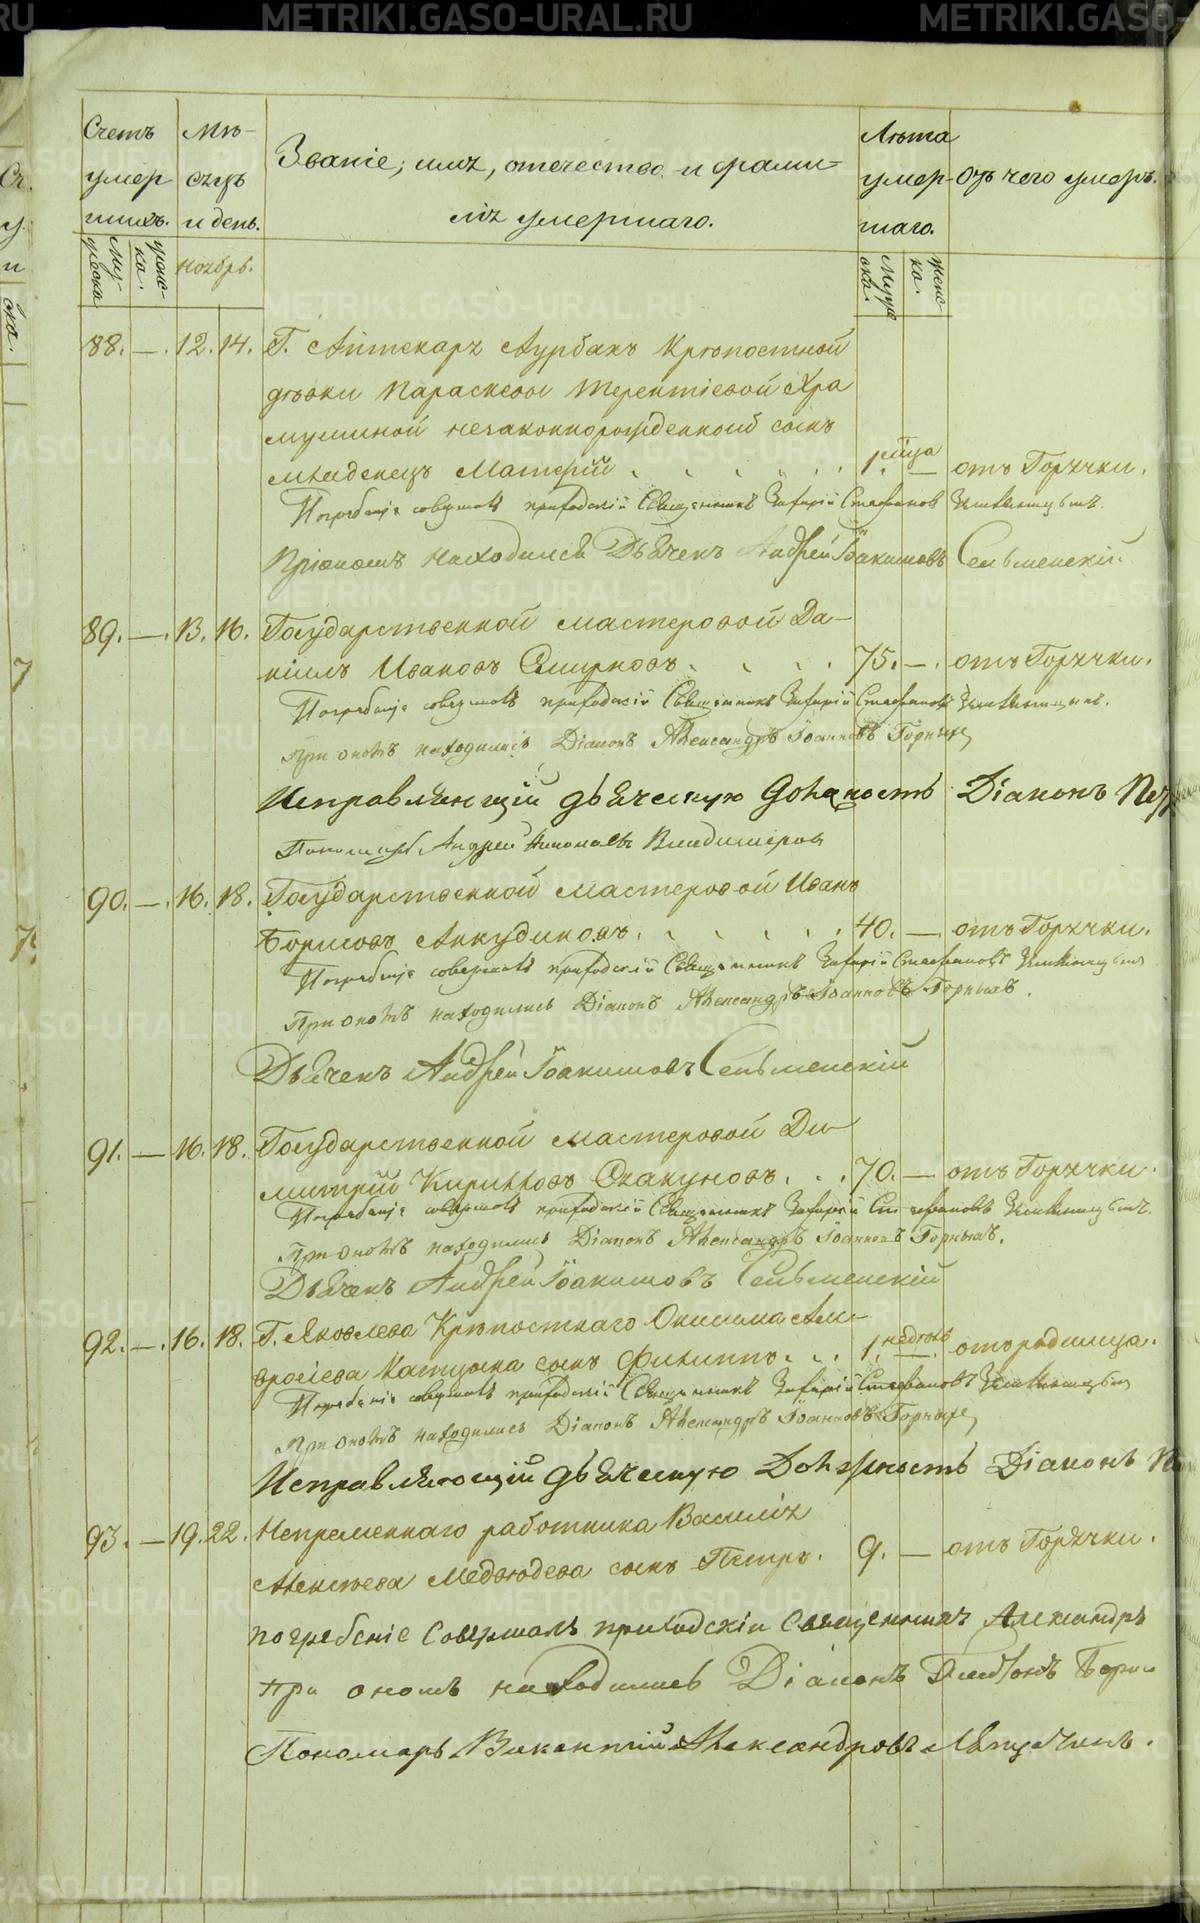 METRIKI.GASO-URAL.RU
Счетъ умер шихъ.
Мѣ- сяцъ и день.
Званіе, имя, отечество, и фами-
лія умершаго.
Лѣта умер- шаго.
Отъ чего умеръ.
Мужеска
женска.
Ноября.
Мужеска.
женска.
88. —. 12. 14. Г. Аптекаря Аурбахъ Крѣпостной
дѣвки Параскевы Терентіевой Хра
мушиной незаконнорожденной сынъ
младенецъ . . . . . . 1. мѣсяца — отъ Горячки.
Погребеніе совершалъ приходскій Священникъ Захарій Стефановъ
При ономъ находился Дьячекъ Андрей Іоакимовъ Сельменскій.
89. —. 13. 16. Государственной мастеровой Да-
ніилъ Ивановъ Смирновъ . . . . 75. —. отъ Горячки.
Погребеніе совершалъ приходскій Священникъ Захарій Стефановъ
При ономъ находились Діаконъ Александръ Іоанновъ Горныхъ,
Исправляющій дьяческую должность Діаконъ Пет
Пономарь Андрей Владимеровъ
90. —. 16. 18. Государственной мастеровой Иванъ
Борисовъ Анкудиновъ . . . . . . 40. —. отъ Горячки.
Погребеніе совершалъ приходскій Священникъ Захарій Стефановъ
При ономъ находились Діаконъ Александръ Іоанновъ Горныхъ.
Дьячекъ Андрей Іоакимовъ Сельменскій
91. — 16. 18. Государственной мастеровой Ди-
митрій Кирилловъ . . . 70. — отъ Горячки.
Погребеніе совершалъ приходскій Священникъ Захарій Стефановъ
При ономъ находились Діаконъ Александръ Іоанновъ Горныхъ.
Дьячекъ Андрей Іоакимовъ Сельменскій
92. —. 16. 18. Г. Яковлева Крѣпостнаго Онисима Ам-
вросіева сынъ Филиппъ . . . 1. недѣль — отъ родимца.
Погребеніе совершалъ приходскій Священникъ Захарій Стефановъ
При ономъ находились Діаконъ Александръ Іоанновъ Горныхъ,
Исправляющій дьяческую Должность Діаконъ
93. — 19. 22. Непременнаго работника Василія
Алексѣева Медвѣдева сынъ Петръ. 9. — отъ Горячки.
погребеніе совершалъ приходскій Священникъ Александръ
при ономъ находились Діаконъ
Пономарь Викентій Александровъ